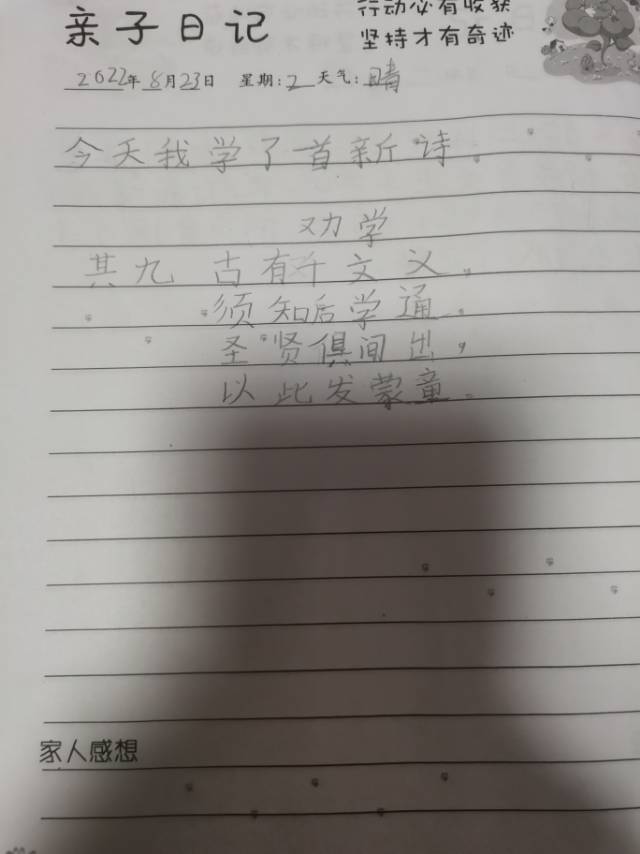 亲子日记
行动必有收获
坚持才有奇迹
2022年8月23日 星期:2 天气:晴
今天我学了首新诗。
劝学
其九 古有千文义。
须知后学通。
圣贤俱间出,
以此发蒙童。
家人感想